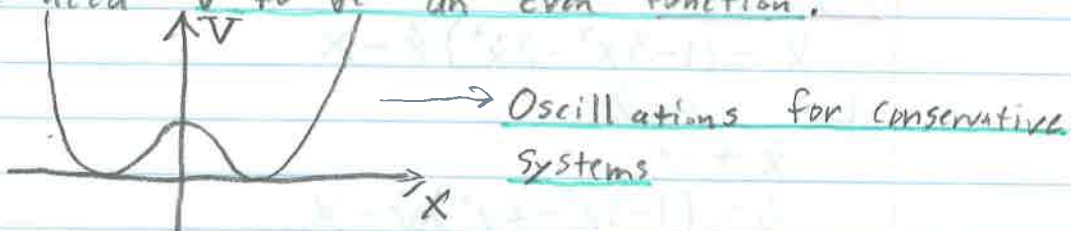 to be an even function.
V
Oscillations for conservative
systems
X